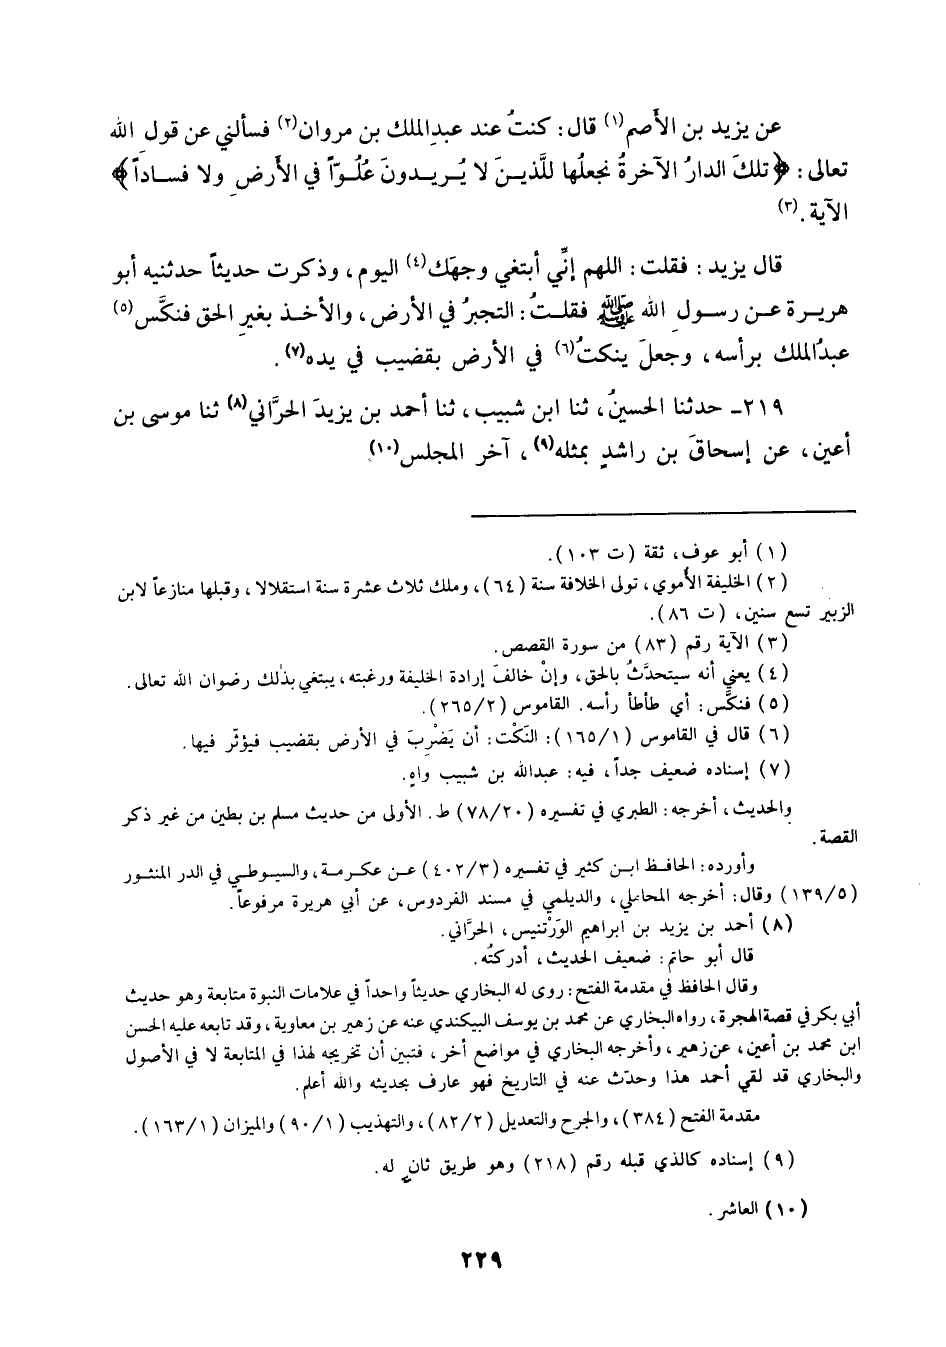 عن يزيد بن الأصم(١) قال: كنتُ عند عبدِالملك بن مروان(٢) فسألني عن قول الله
تعالى: ﴿تلكَ الدارُ الآخرةُ نجعلُها للَّذيـنَ لا يُـريـدونَ عُلُـوّاً في الأرضِ ولا فسـاداً﴾
الآية.(٣)
قال يزيد: فقلت: اللهم إنِّي أبتغي وجهَك(٤) اليوم، وذكرت حديثاً حدثنيه أبو
هريـرة عـن رسـولِ الله ﷺ فقلـتُ: التجبرُ في الأرض، والأخـذ بغيرِ الحق فنكَّس(٥)
عبدُالملك برأسه، وجعلَ ينكتُ(٦) في الأرض بقضيب في يده(٧).
٢١٩ـ حدثنا الحسينُ، ثنا ابن شبيب، ثنا أحمد بن يزيدَ الحرَّاني(٨) ثنا موسى بن
أعين، عن إسحاقَ بن راشدٍ بمثله(٩)، آخر المجلس(١٠)
(١) أبو عوف، ثقة (ت ١٠٣).
(٢) الخليفة الأموي، تولى الخلافة سنة (٦٤)، وملك ثلاث عشرة سنة استقلالا، وقبلها منازعاً لابن
الزبير تسع سنين، (ت ٨٦).
(٣) الآية رقم (٨٣) من سورة القصص.
(٤) يعني أنه سيتحدَّثُ بالحق، وإنْ خالفَ إرادة الخليفة ورغبته، يبتغي بذلك رضوان الله تعالى.
(٥) فنكَّس: أي طأطأ رأسه. القاموس (٢/ ٢٦٥).
(٦) قال في القاموس (١/ ١٦٥): النَكْت: أن يَضْرِبَ في الأرض بقضيب فيؤثّر فيها.
(٧) إسناده ضعيف جداً، فيه: عبدالله بن شبيب واهٍ.
والحديث، أخرجه: الطبري في تفسيره (٢٠/ ٧٨) ط. الأولى من حديث مسلم بن بطين من غير ذكر
القصة.
وأورده: الحافـظ ابـن كثير في تفسيره (٣/ ٤٠٢) عـن عكـرمـة، والسيـوطـي في الدر المنثـور
(٥/ ١٣٩) وقال: أخرجه المحاملي، والديلمي في مسند الفردوس، عن أبي هريرة مرفوعاً.
(٨) أحمد بن يزيد بن ابراهيم الوَرْتنيس، الحرَّاني.
قال أبو حاتم: ضعيف الحديث، أدركتُه.
وقال الحافظ في مقدمة الفتح: روى له البخاري حديثاً واحداً في علامات النبوة متابعة وهو حديث
أبي بكر في قصة الهجرة، رواه البخاري عن محمد بن يوسف البيكندي عنه عن زهير بن معاوية، وقد تابعه عليه الحسن
ابن محمد بن أعين، عن زهير، وأخرجه البخاري في مواضع أخر، فتبين أن تخريجه لهذا في المتابعة لا في الأصول
والبخاري قد لقي أحمد هذا وحدّث عنه في التاريخ فهو عارف بحديثه والله أعلم.
مقدمة الفتح (٣٨٤)، والجرح والتعديل (٢/ ٨٢)، والتهذيب (١/ ٩٠) والميزان (١/ ١٦٣).
(٩) إسناده كالذي قبله رقم (٢١٨) وهو طريق ثانٍ له.
(١٠) العاشر.
٢٢٩